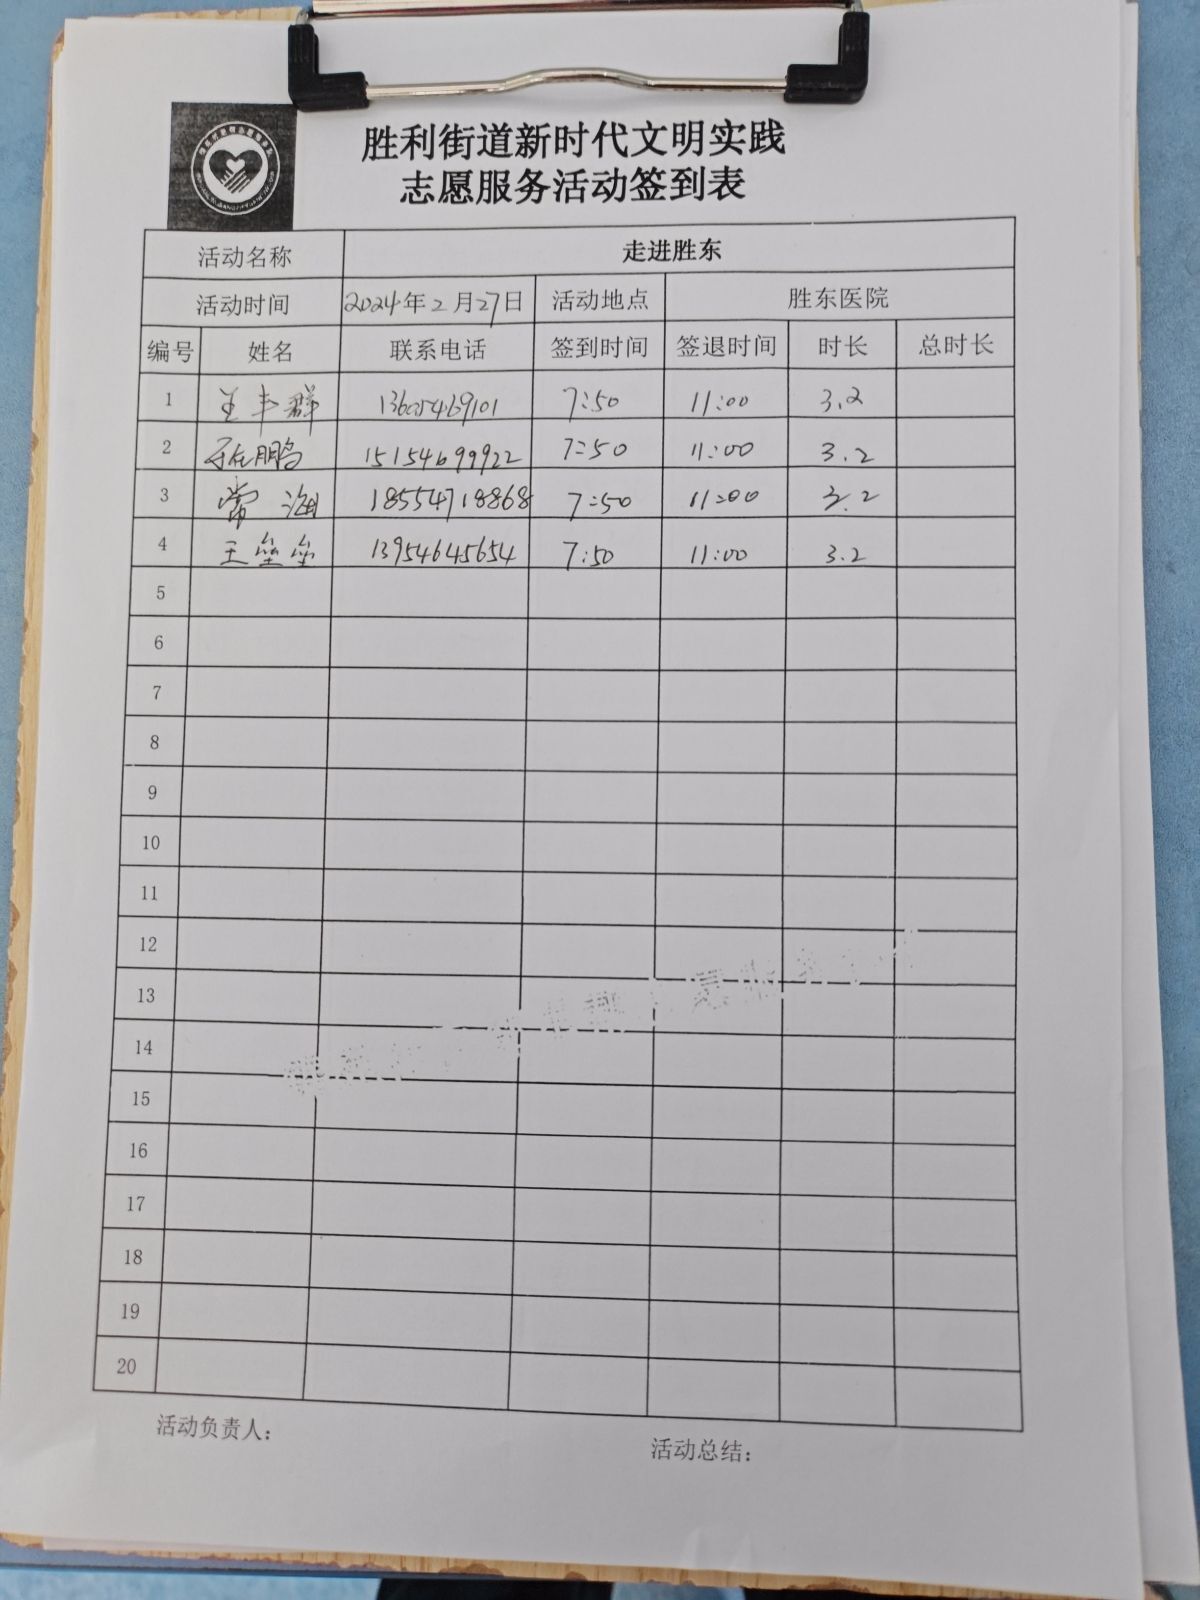 胜利街道新时代文明实践
志愿服务活动签到表
活动名称 走进胜东
活动时间 2024年2月27日 活动地点 胜东医院
编号 姓名 联系电话 签到时间 签退时间 时长 总时长
1 丰群 13605469101 7:50 11:00 3.2
2 鹏 15154699922 7:50 11:00 3.2
3 常海 18554718868 7:50 11:00 3.2
4 王垒垒 13954645654 7:50 11:00 3.2
5
6
7
8
9
10
11
12
13
14
15
16
17
18
19
20
活动负责人：
活动总结：